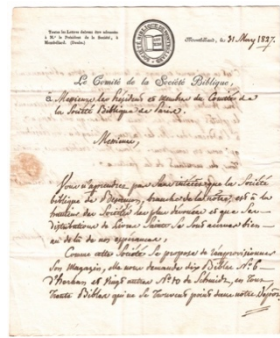 Toutes les Lettres doivent être adressées
à Mr. le Président de la Société, à
Montbéliard. (Doubs.)
Montbéliard, le 31 Mars 1827.
Le Comité de la Société Biblique,
à Messieurs les Président et Membres du Comité de
la Société Biblique de Paris.
Messieurs,
Vous apprendrez que la Société
biblique de branche de la nôtre, est à la
hauteur des Sociétés les plus et que ses
distributions de Livres Saints se sont
au delà de nos espérances.
Comme cette Société se propose
Son Magasin, elle nous demande dix Bibles No. 6
et Vingt autres No. 10 de Schmidt, en tout
Trente Bibles qui ne se trouvent point dans notre Dépôt